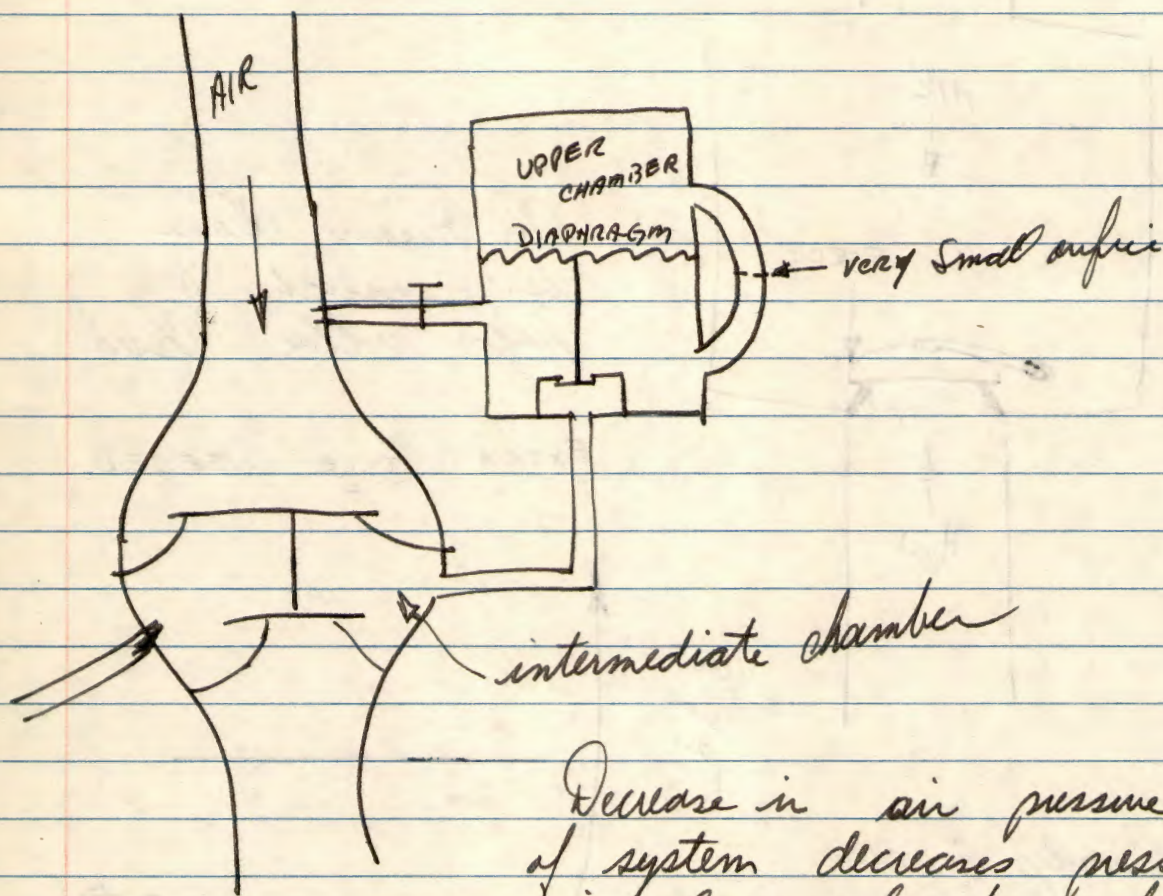 AIR
UPPER
CHAMBER
DIAPHRAGM
very Small
intermediate chamber
Decrease in air pressure
of system decreases